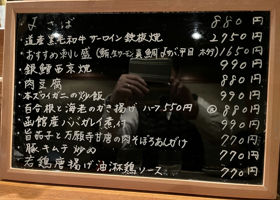 〆さば 880円
・道産黒毛和牛サーロイン鉄板焼 2750円
・おすすめ刺し盛(鮪,生サーモン,真鯛,〆さば,甲目 本外)1650円
・銀鱈西京焼 990円
・肉豆腐 880円
・本ズワイガニの炒飯 990円
・百合根と海老のかき揚げ ハーフ550円 @880円
・函館産ババガレイ煮付 990円
・旨茄子と万願寺甘唐の肉そぼろあんかけ 770円
・豚キムチ炒め 770円
・若鶏唐揚げ油淋鶏ソース 770円